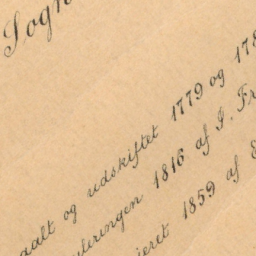 Sogn
aalt og udskiftet 1779 og 178
uleringen 1816 af I. Fr
ieret 1859 af E